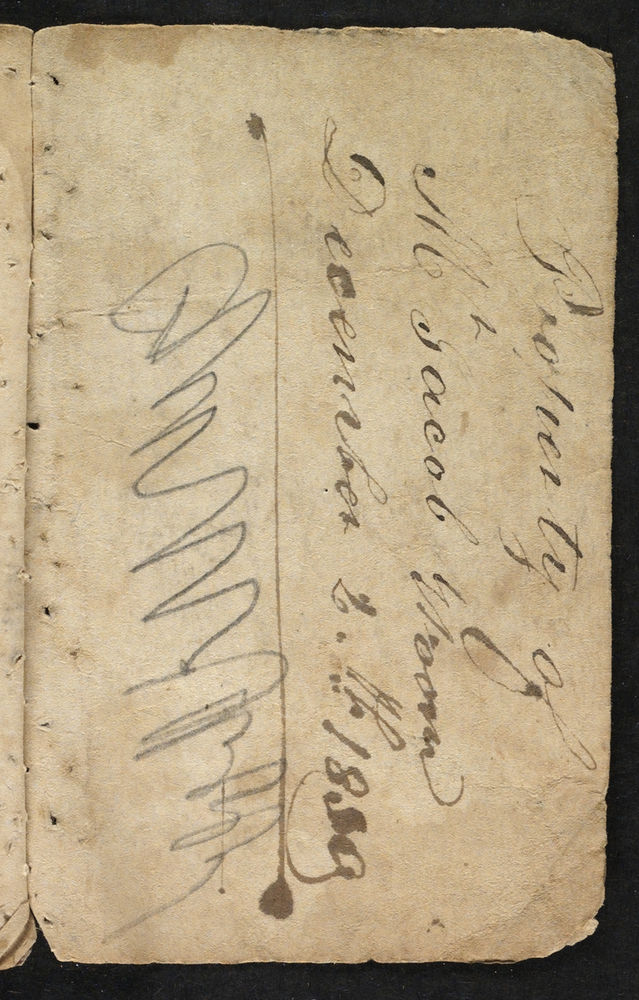 Property of
Mr Jacob Wooru
December 2.th 1859